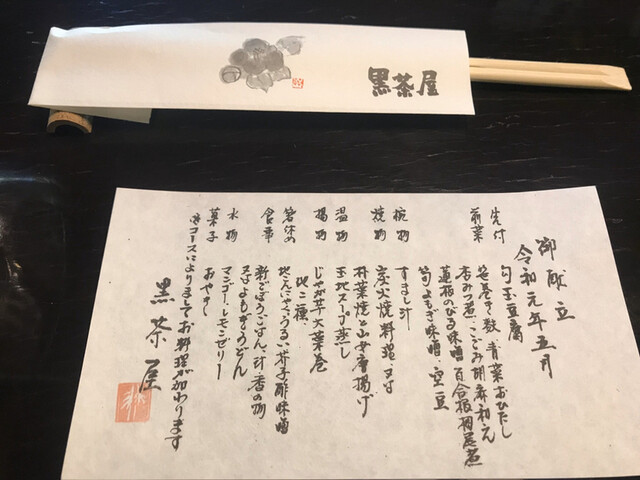 黒茶屋
御献立
令和元年五月
先付 勾玉豆腐
前菜 笹巻き麩・青菜おひたし
杏みつ煮・こごみ胡麻和え
蓮根のひる味噌・百合根梅尾煮
筍よもぎ味噌・空豆
椀物 すまし汁
焼物 炭火焼料理 又は
朴葉焼と山女唐揚げ
温物 玉地スープ蒸し
揚物 じゃが芋大葉巻
他二種
箸休め 地こんにゃく・うるい芥子酢味噌
食事 新ごぼうごはん・汁・香の物
又はよもぎうどん
水物 マンゴー・レモンゼリー
菓子 おやき
※コースによりましてお料理が加わります
黒茶屋